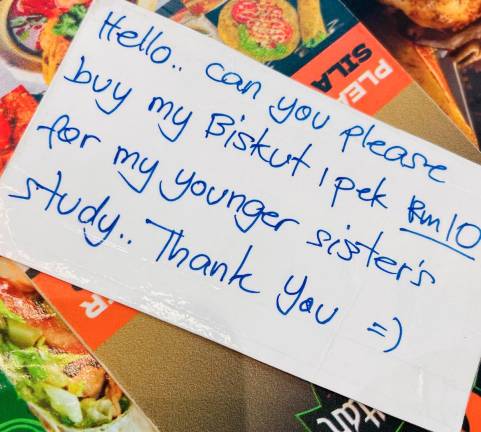 Hello.. can you please
buy my Biskut 1 pek Rm10
for my younger sister's
study.. Thank you =)
PLEA
SILA